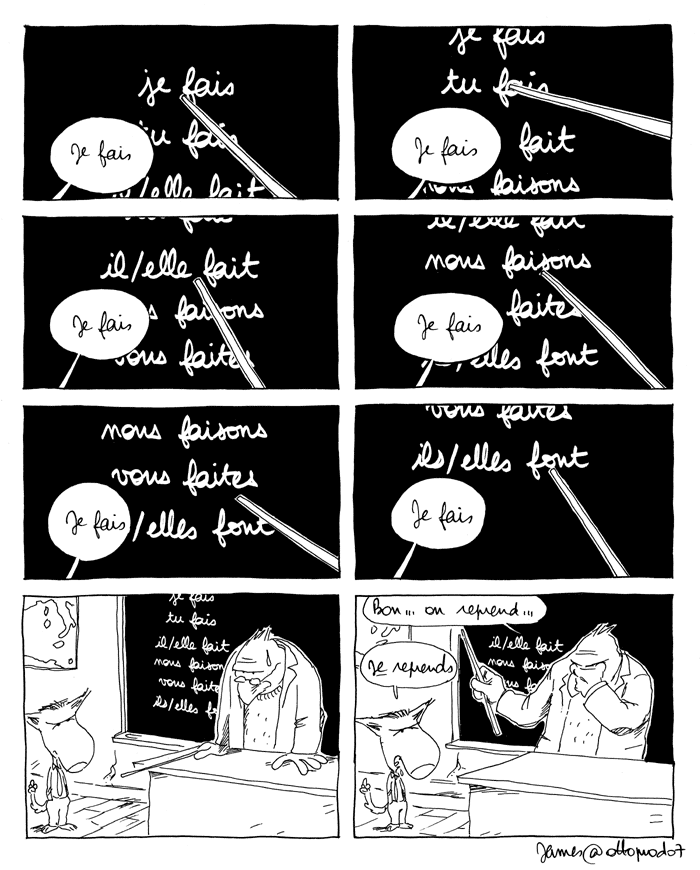 je fais
tu fai
il/elle fait
Je fais
je fais
tu fais
fait
nous faisons
Je fais
il/elle fait
s faisons
vous faites
Je fais
il/elle fait
nous faisons
faites
elles font
Je fais
nous faisons
vous faites
/elles font
Je fais
vous faites
ils/elles font
Je fais
je fais
tu fais
il/elle fait
nous faison
vous faite
ils/elles f
Bon... on reprend...
Je reprends
il/elle fait
nous faiso
us fai
James@ottoprod07